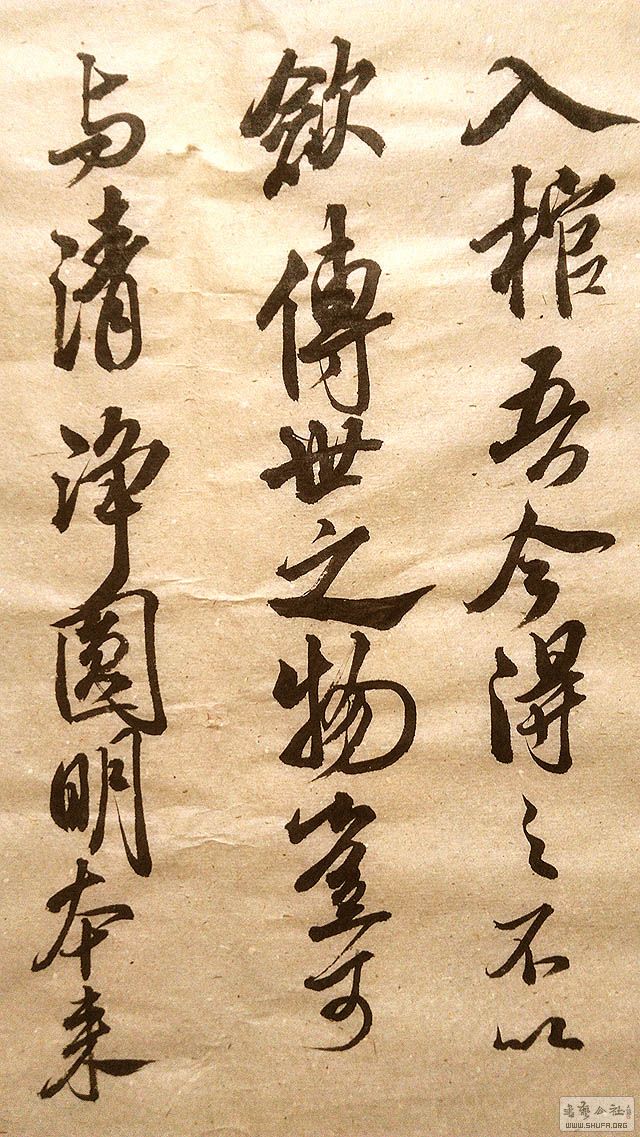 入棺吾今得之不以
歛傳世之物豈可
与清淨圓明本来
書艺公社
WWW.SHUFA.ORG